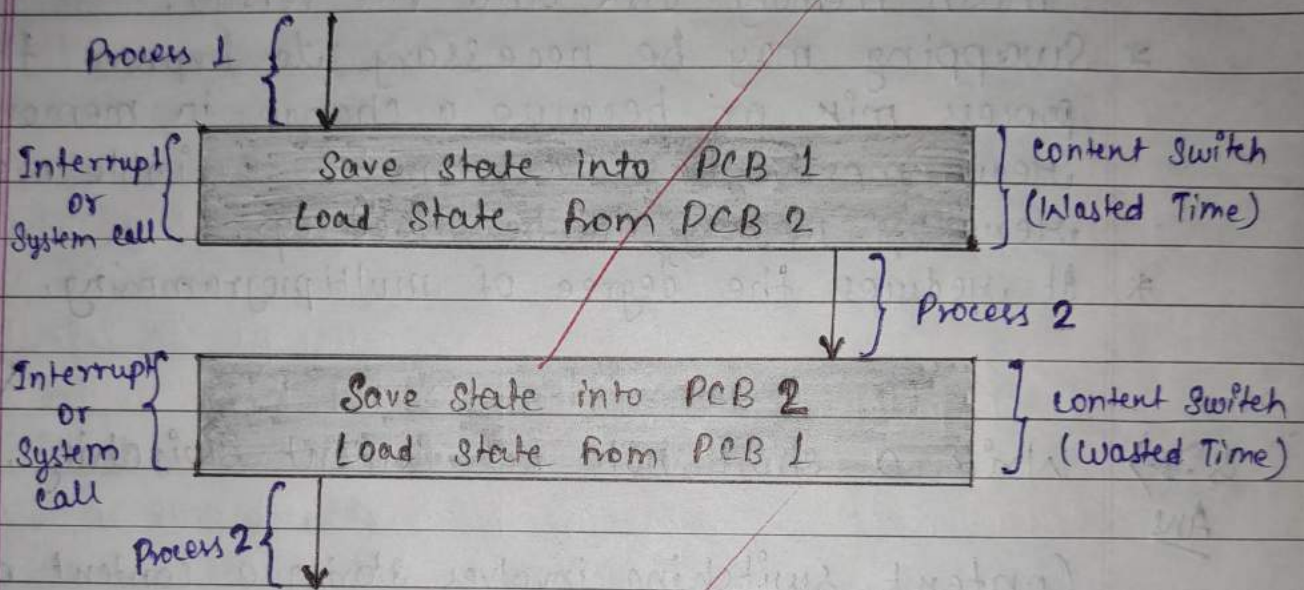 Process 1
Interrupt
or
System call
Save state into PCB 1
Load State from PCB 2
Content Switch
(Wasted Time)
Process 2
Interrupt
or
System
call
Save state into PCB 2
Load State from PCB 1
Content Switch
(Wasted Time)
Process 2